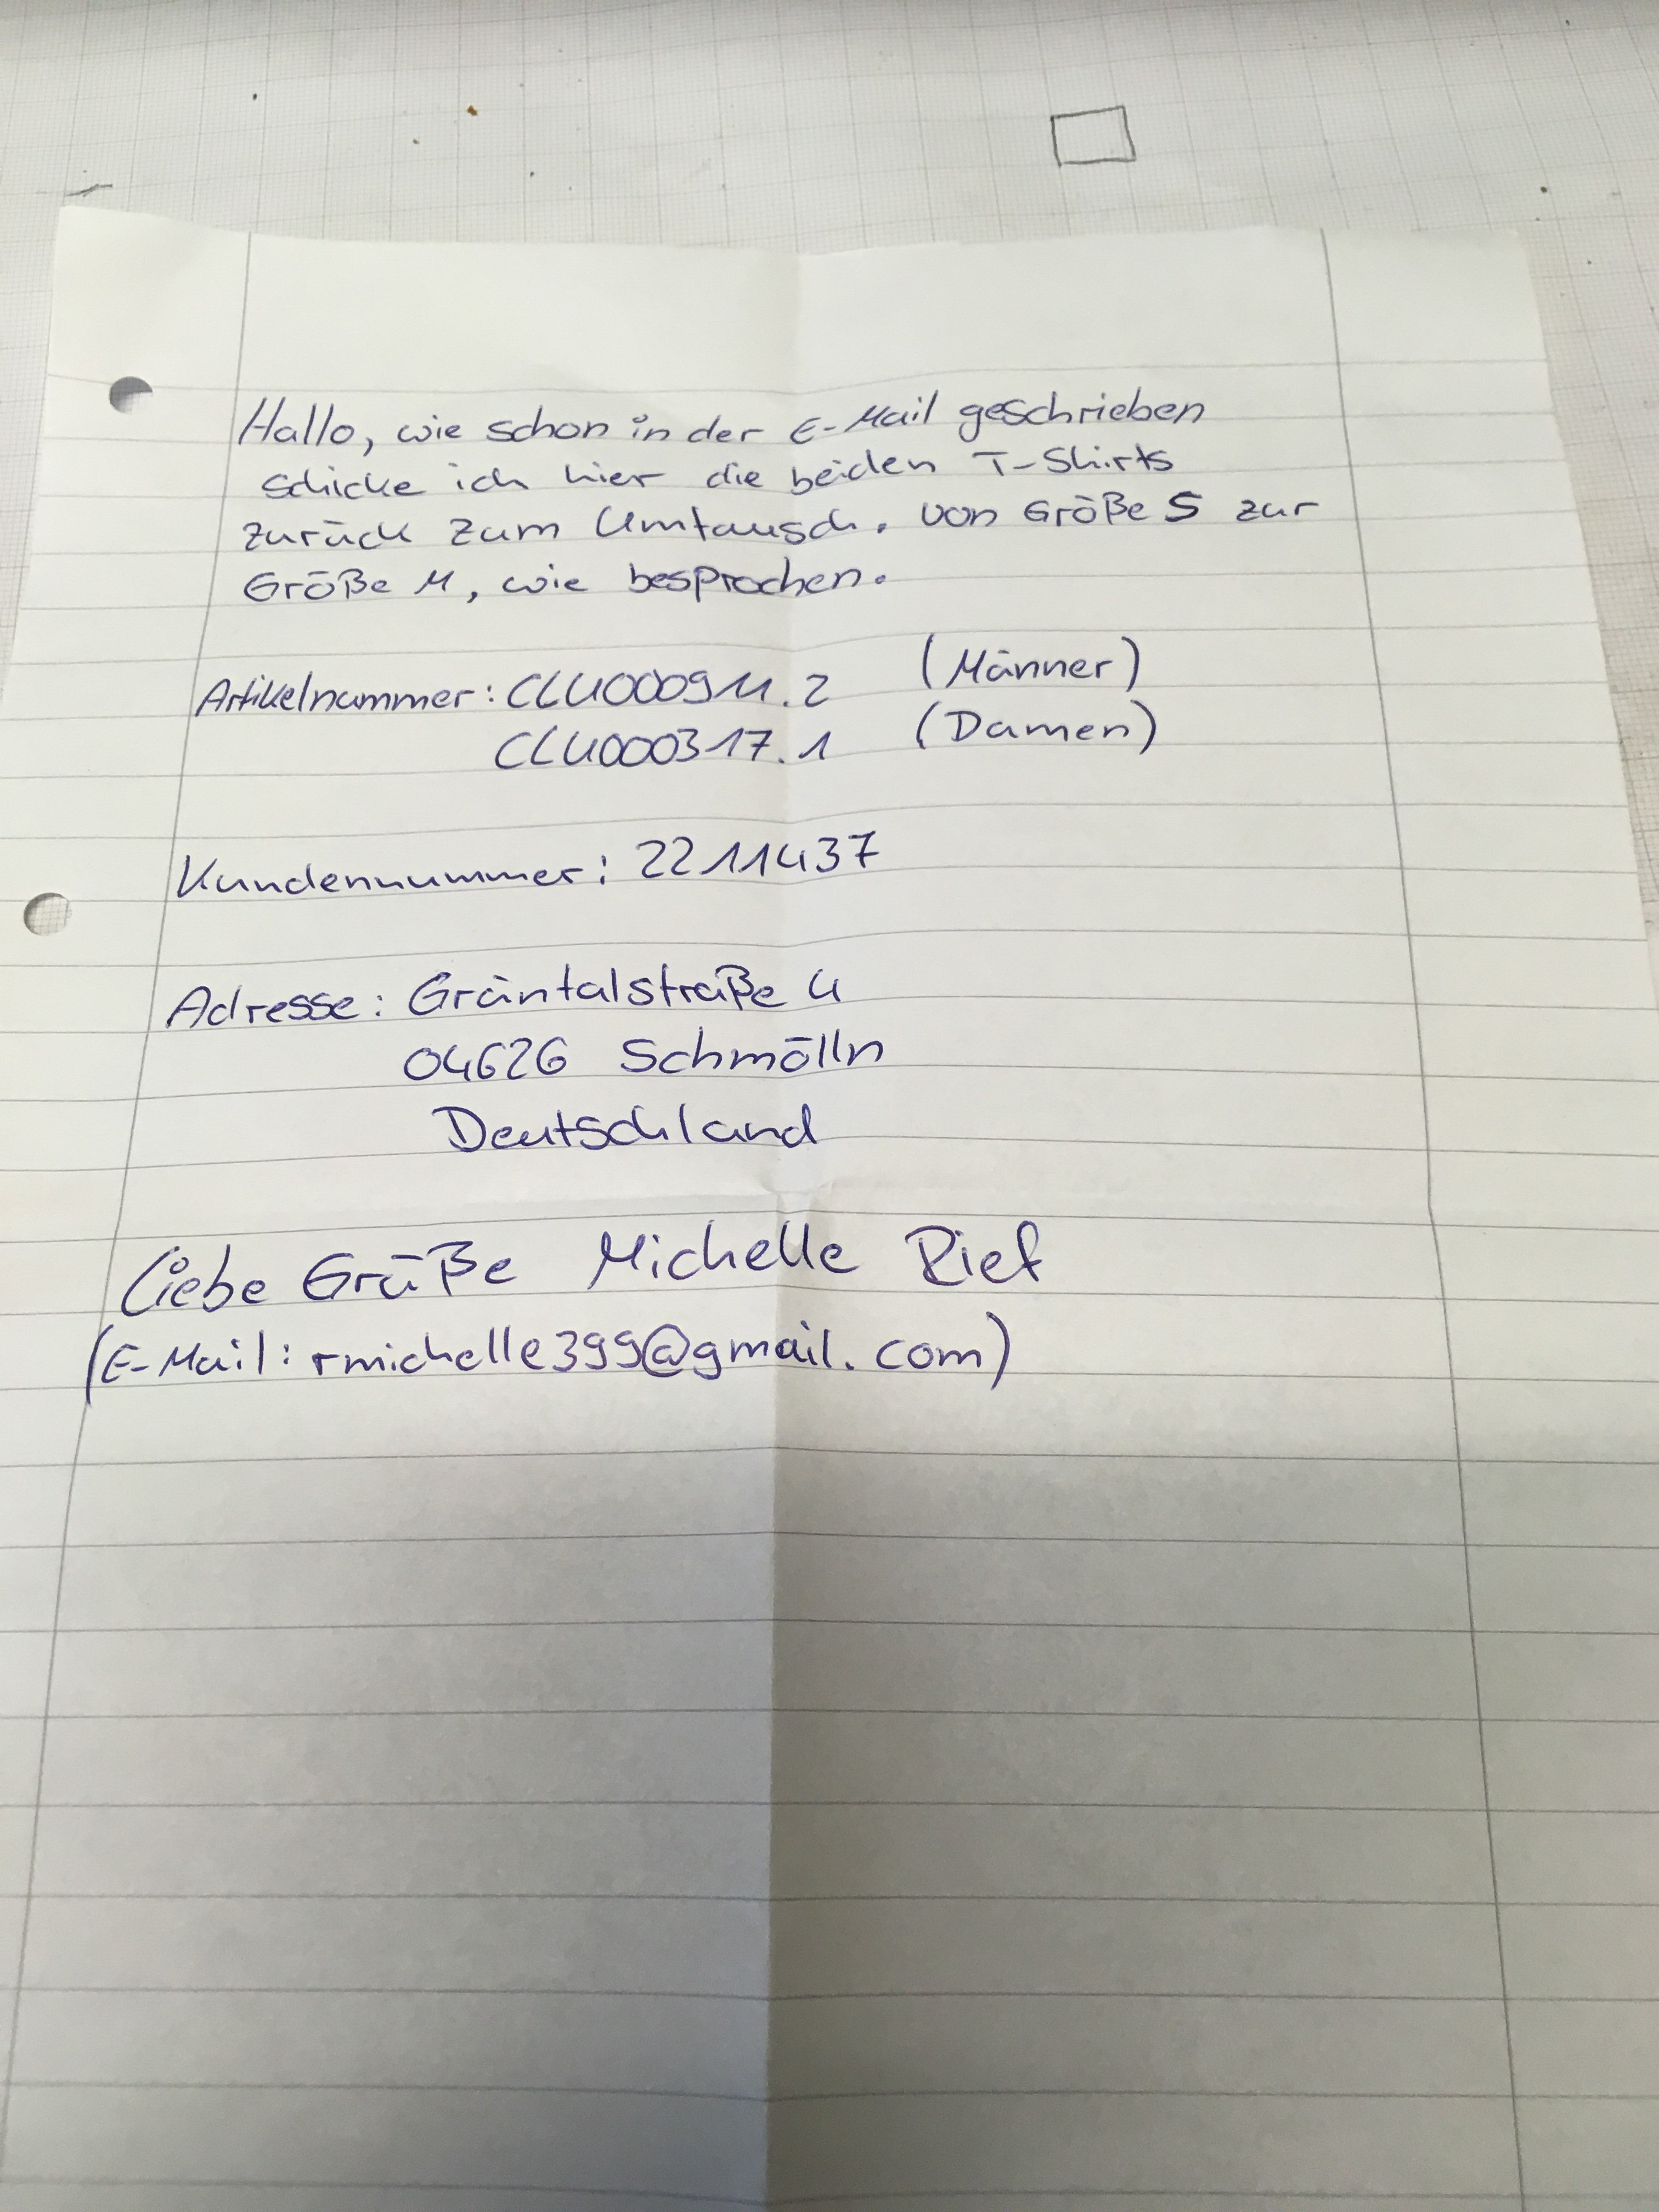 Hallo, wie schon in der E-Mail geschrieben
schicke ich hier die beiden T-Shirts
zurück zum Umtausch. Von Größe S zur
Größe M, wie besprochen.
Artikelnummer: CLU000911.2 (Männer)
CLU000317.1 (Damen)
Kundennummer: 2211437
Adresse: Grüntalstraße 4
04626 Schmölln
Deutschland
Liebe Grüße Michelle Rief
(E-Mail: rmichelle399@gmail.com)